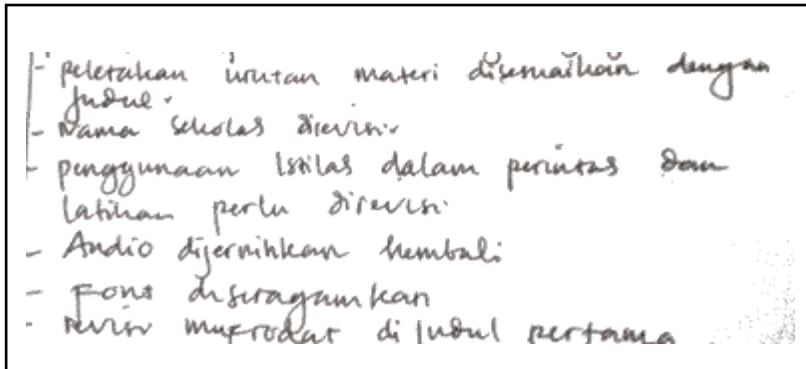 - peletakan urutan materi disesuaikan dengan
judul.
- Nama sekolah direvisi.
- penggunaan Istilah dalam perintah dan
latihan perlu direvisi.
- Audio dijernihkan kembali
- Font diseragamkan
- revisi mufrodat di judul pertama